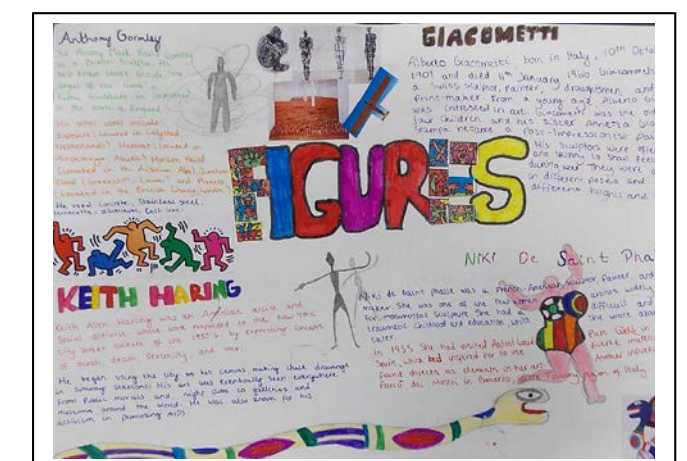 Anthony Gormley
Sir Antony Mark David Gormley
is a British Sculptor. His
best known works include 'the
angel of the North' a
Public Sculpture in Gateshead
in the North of England.
His other work include
Exposure (Located in Lelystad,
Netherlands), Habitat (Located in
Anchorage, Alaska) Horizon Field
(Located in the Austrian Alps) Quantum
Cloud (Greenwich, London) and Planets
(Located in the British Library, London)
He used concrete, Stainless steel,
aluminium, Cast iron.
GIACOMETTI
Alberto Giacometti, born in Italy, 10th Octo
1901 and died 11th January 1966. Giacometti
a Swiss Sculptor, painter, draughtsmen, and
Print-maker. From a young age, Alberto Gia
was intrested in art. Giacometti was the
four Children and his sister Annetta Gia
Stampa became a Post-Impressionist
His Sculptors were often
and Skinny to Show
during war. They were a
in different poses and
different heights and
FIGURES
KEITH HARING
Keith Allen Haring was an American artist and
Social activist whose work responded to the New York
City Street culture of the 1980's by expressing concepts
of birth, death, Sexuality, and war.
He began using the city as his canvas making chalk drawings
in Subway Stations. His art was eventually seen everywhere
from Public murals and night clubs to galleries and
museums around the world. He was also known for his
activism in Promoting AIDS
NIKI De Saint Pha
Niki de Saint phalle was a French-American Sculptor, Painter, and
maker. She was one of the few women artists widely
for monumental Sculpture. She had a difficult and
traumatic childhood and education, which She wrote about
later
In 1955 She had visited Antoni Gaudi Park Güell in
Spain, which had inspired her to use diverse materials
found objects as elements in her art. Another influence
Parco dei Mostri in Bomarzo, region of Italy